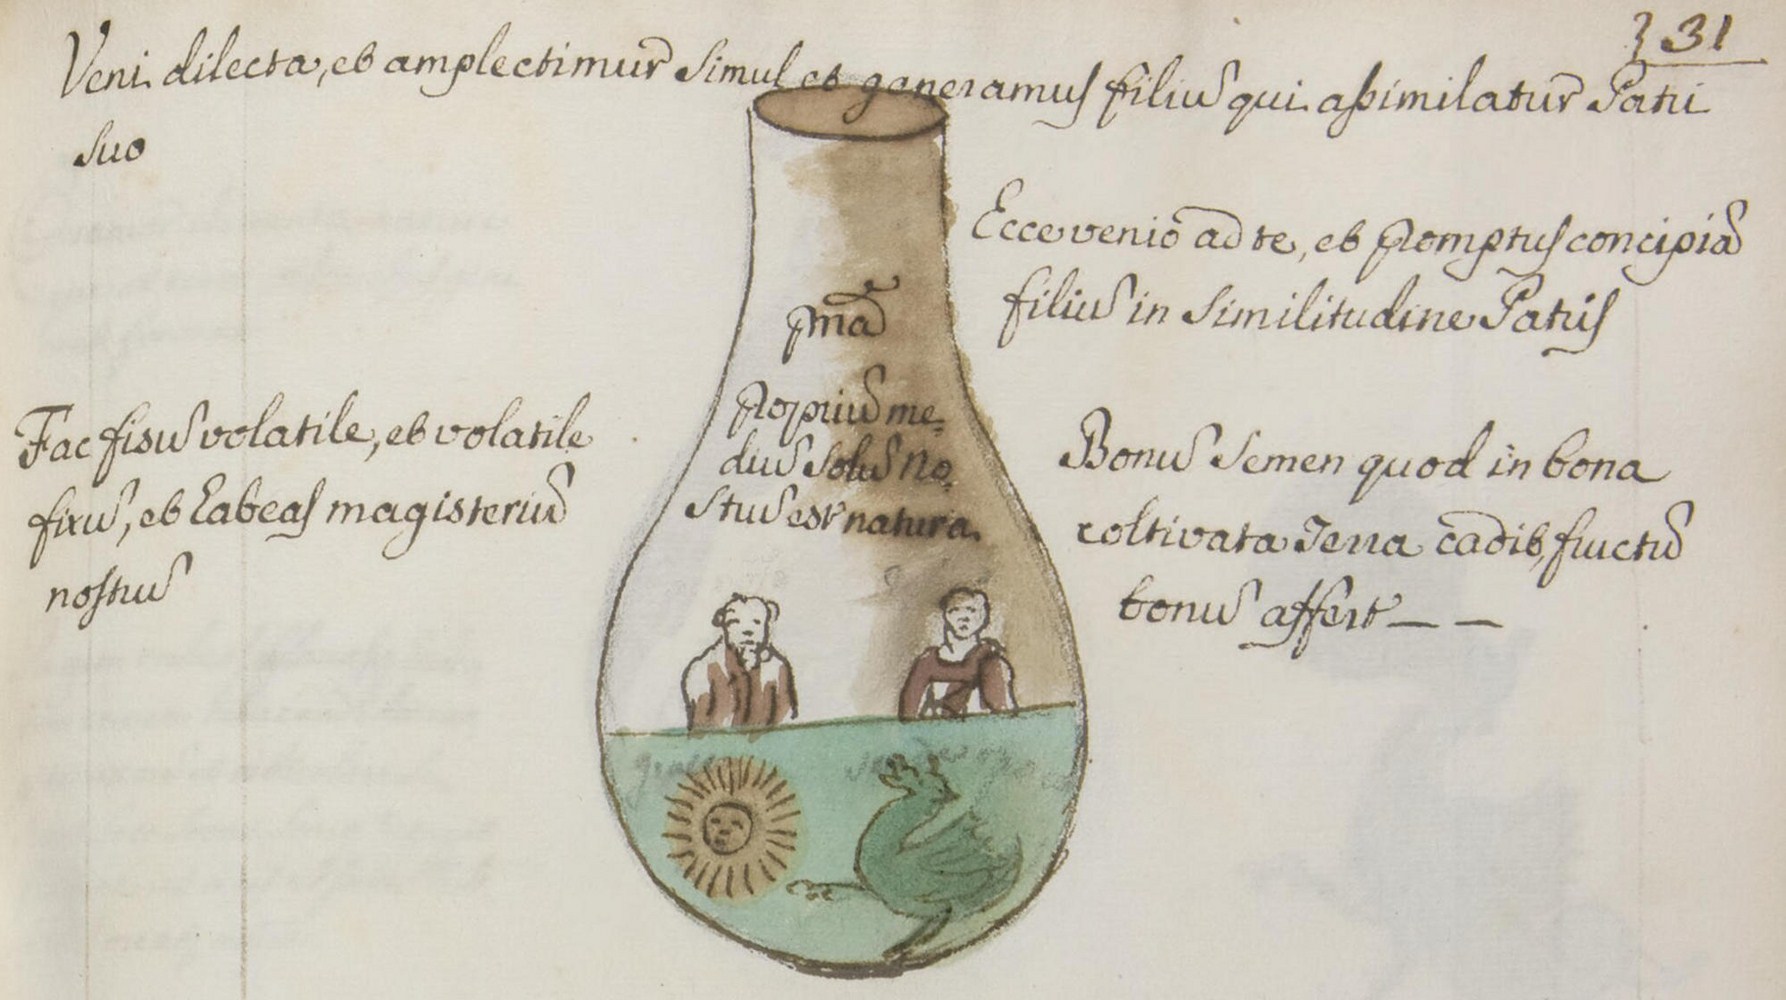 331
Veni dilecta, et amplectimur simul et generamus filiū qui assimilatur Patri
suo
Ecce venio ad te, et promptus concipiā
filiū in similitudine Patris
pmā
Propriū me-
diū solū no-
strū est natura.
Fac fixū volatile, et volatile
fixū, et habeas magisteriū
nostrū
Bonū semen quod in bona
coltivata Terra cadit, fructū
bonū affert — —